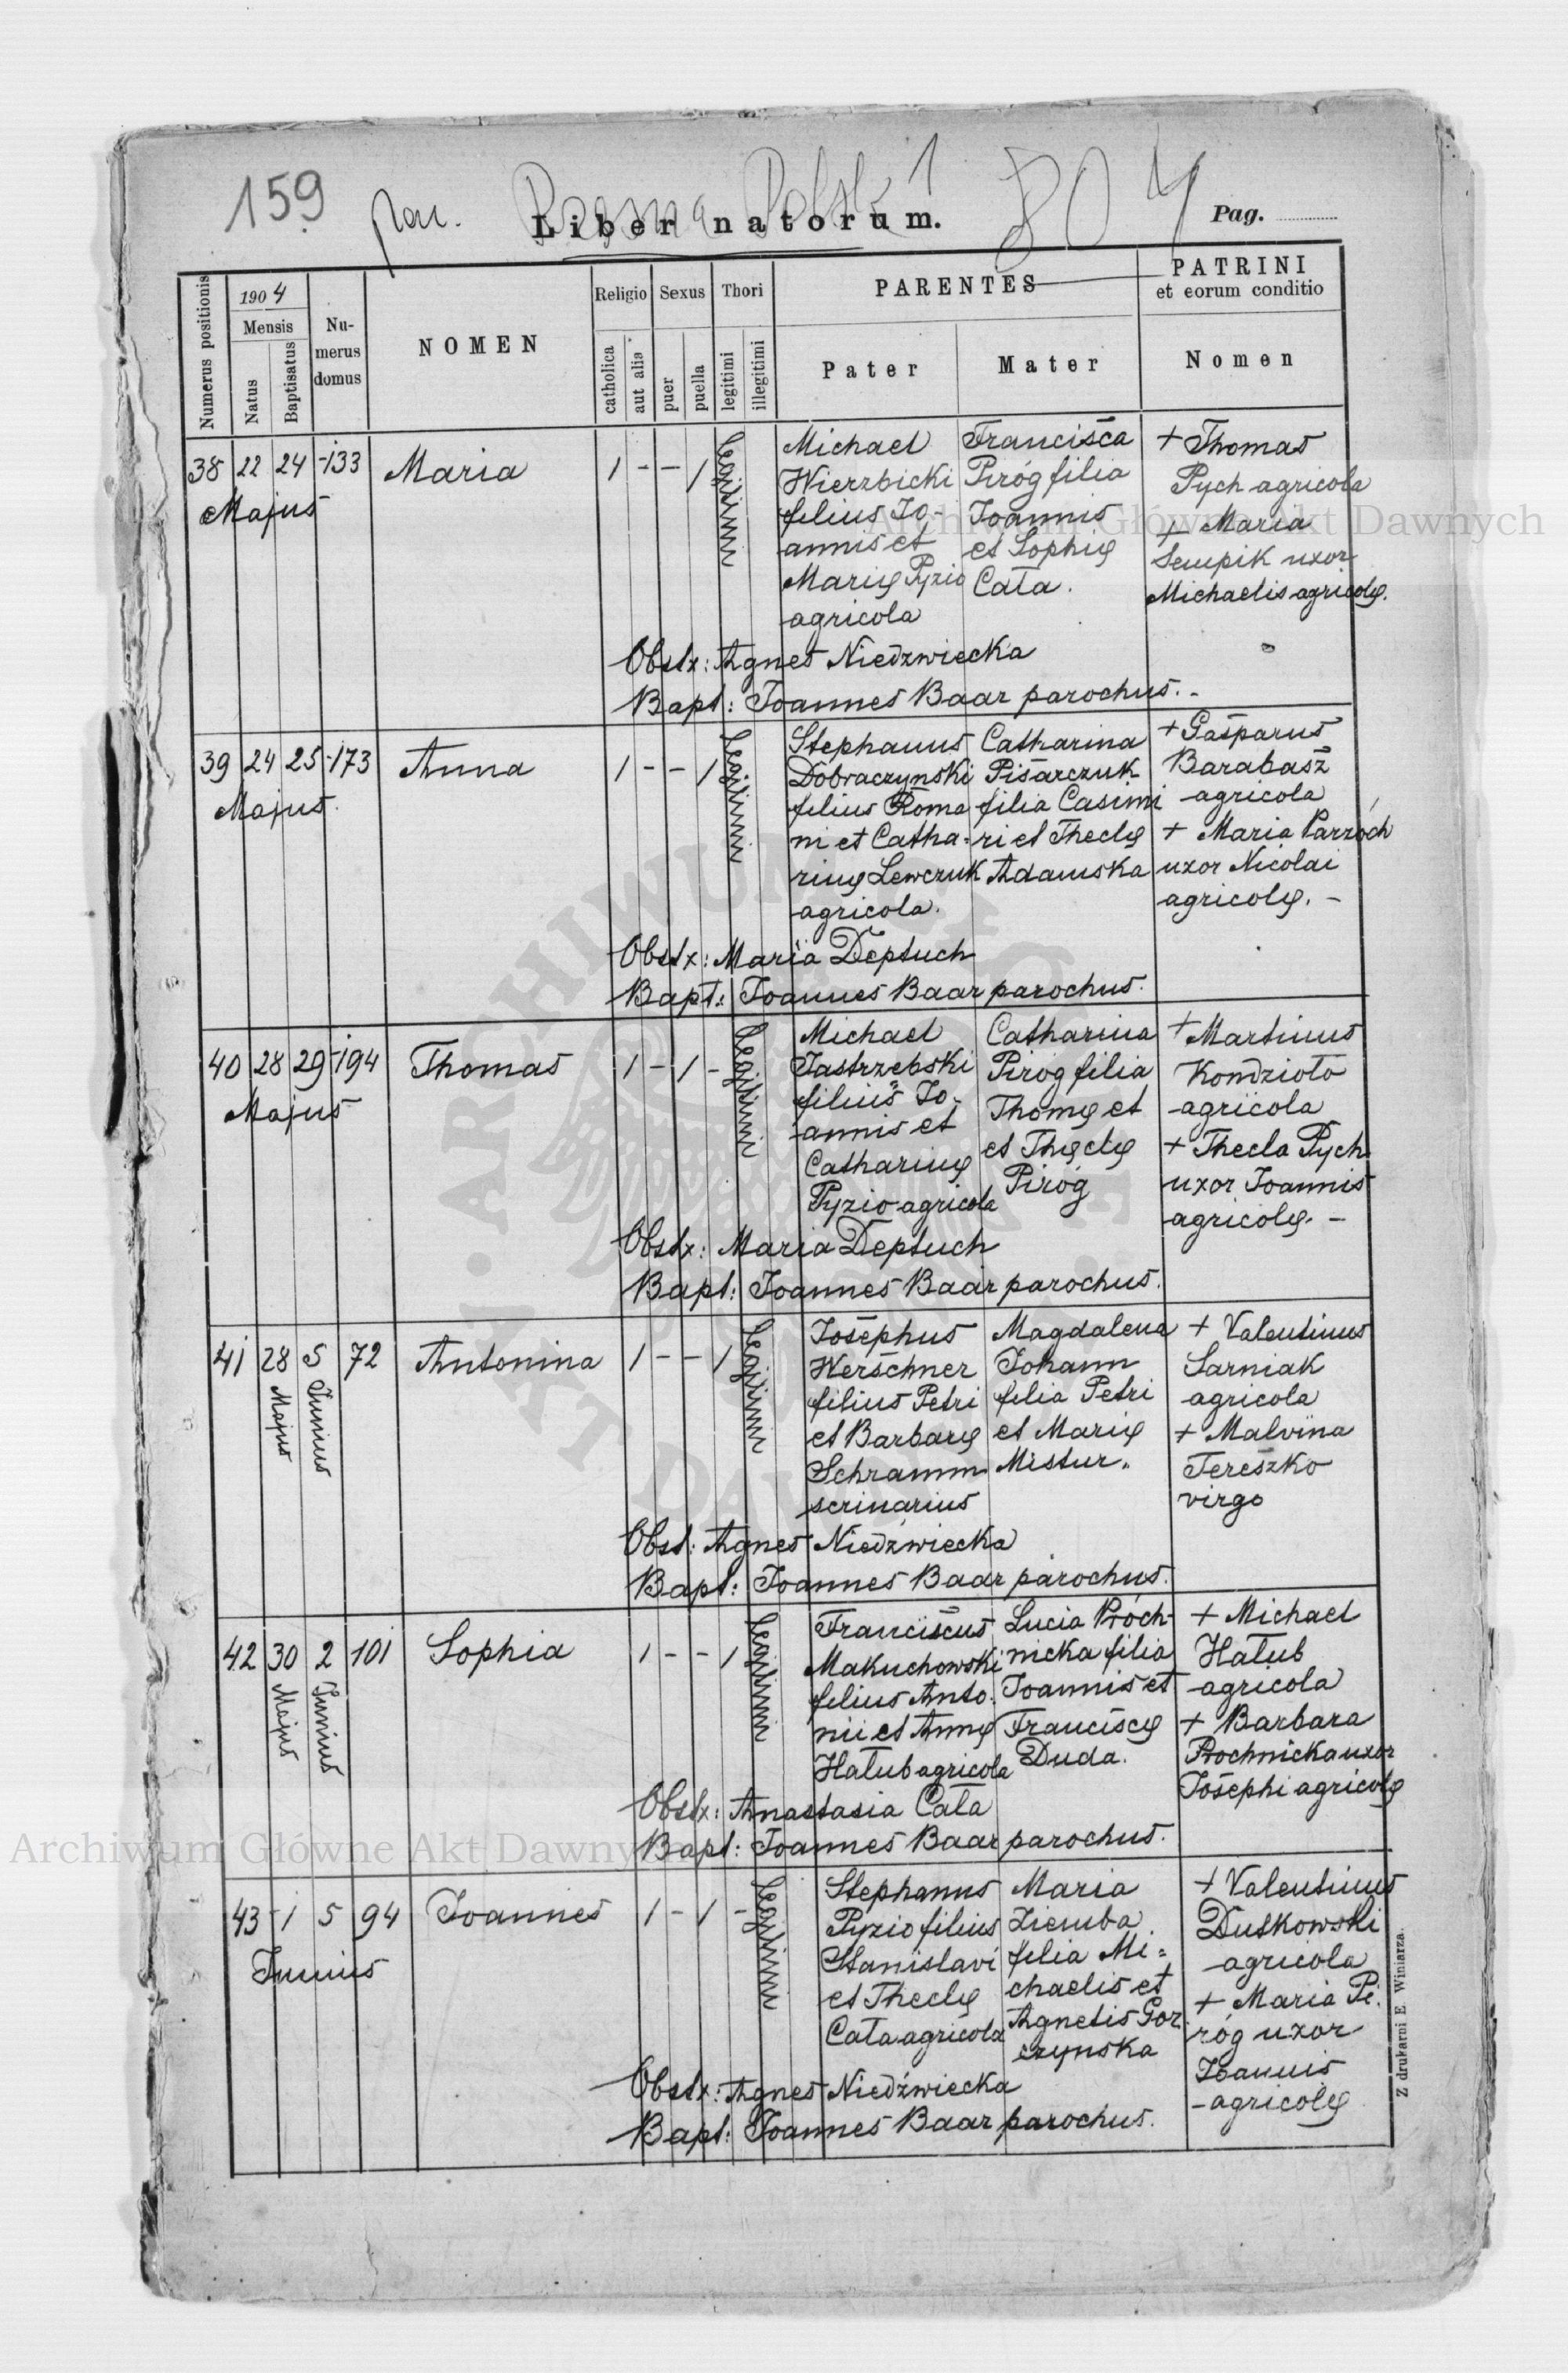 159
par.
804
Liber natorum.
Pag.
Numerus positionis
1904
Mensis
Natus
Baptisatus
Numerus domus
NOMEN
Religio
catholica
aut alia
Sexus
puer
puella
Thori
legitimi
illegitimi
PARENTES
Pater
Mater
PATRINI
et eorum conditio
Nomen
38 22 24 133 Maria 1 - - 1 legitimi
Majus
Michael
Wierzbicki
filius Jo-
annis et
Marię Pyzio
agricola
Francisca
Piróg filia
Joannis
et Sophię
Cała.
+ Thomas
Pych agricola
+ Maria
Sempik uxor
Michaelis agricolę.
Obstx: Agnes Niedzwiecka
Bapt: Joannes Baar parochus.-
39 24 25 173 Anna 1 - - 1 legitimi
Majus.
Stephanus
Dobraczynski
filius Roma
ni et Catha-
rinę Lewczuk
agricola.
Catharina
Pisarczuk
filia Casimi
ri et Theclę
Adamska
+ Gasparus
Barabasz
agricola
+ Maria Parzóch
uxor Nicolai
agricolę. -
Obstx: Maria Deptuch
Bapt: Joannes Baar parochus.
40 28 29 194 Thomas 1 - 1 - legitimi
Majus
Michael
Jastrzebski
filius Jo-
annis et
Catharinę
Pyzio agricola
Catharina
Piróg filia
Thomę et
et Theclę
Piróg
+ Martinus
Kondzioło
agricola
+ Thecla Pych
uxor Joannis
agricolę. -
Obstx: Maria Deptuch
Bapt: Joannes Baar parochus.
41 28 5 72 Antonina 1 - - 1 legitimi
Majus
Junius
Josephus
Werschner
filius Petri
et Barbarę
Schramm
scrinarius
Magdalena
Johann
filia Petri
et Marię
Mistur.
+ Valentinus
Sarniak
agricola
+ Malvina
Tereszko
virgo
Obst: Agnes Niedźwiecka
Bapt: Joannes Baar parochus.
42 30 2 101 Sophia 1 - - 1 legitimi
Majus
Junius
Franciscus
Makuchowski
filius Anto-
nii et Annę
Hałub agricola
Lucia Próch-
nicka filia
Joannis et
Franciscę
Duda.
+ Michael
Hałub
agricola
+ Barbara
Prochnicka uxor
Josephi agricolę
Obstx: Anastasia Cała
Bapt: Joannes Baar parochus.
43 1 5 94 Joannes 1 - 1 - legitimi
Junius
Stephanus
Pyzio filius
Stanislavi
et Theclę
Cała agricola
Maria
Ziemba
filia Mi-
chaelis et
Agnetis Gor-
czynska
+ Valentinus
Dutkowski
agricola
+ Maria Pi-
róg uxor
Joannis
agricolę
Obstx: Agnes Niedźwiecka
Bapt: Joannes Baar parochus.
Z drukarni E. Winiarza.
Archiwum Główne Akt Dawnych
Archiwum Główne Akt Dawnych